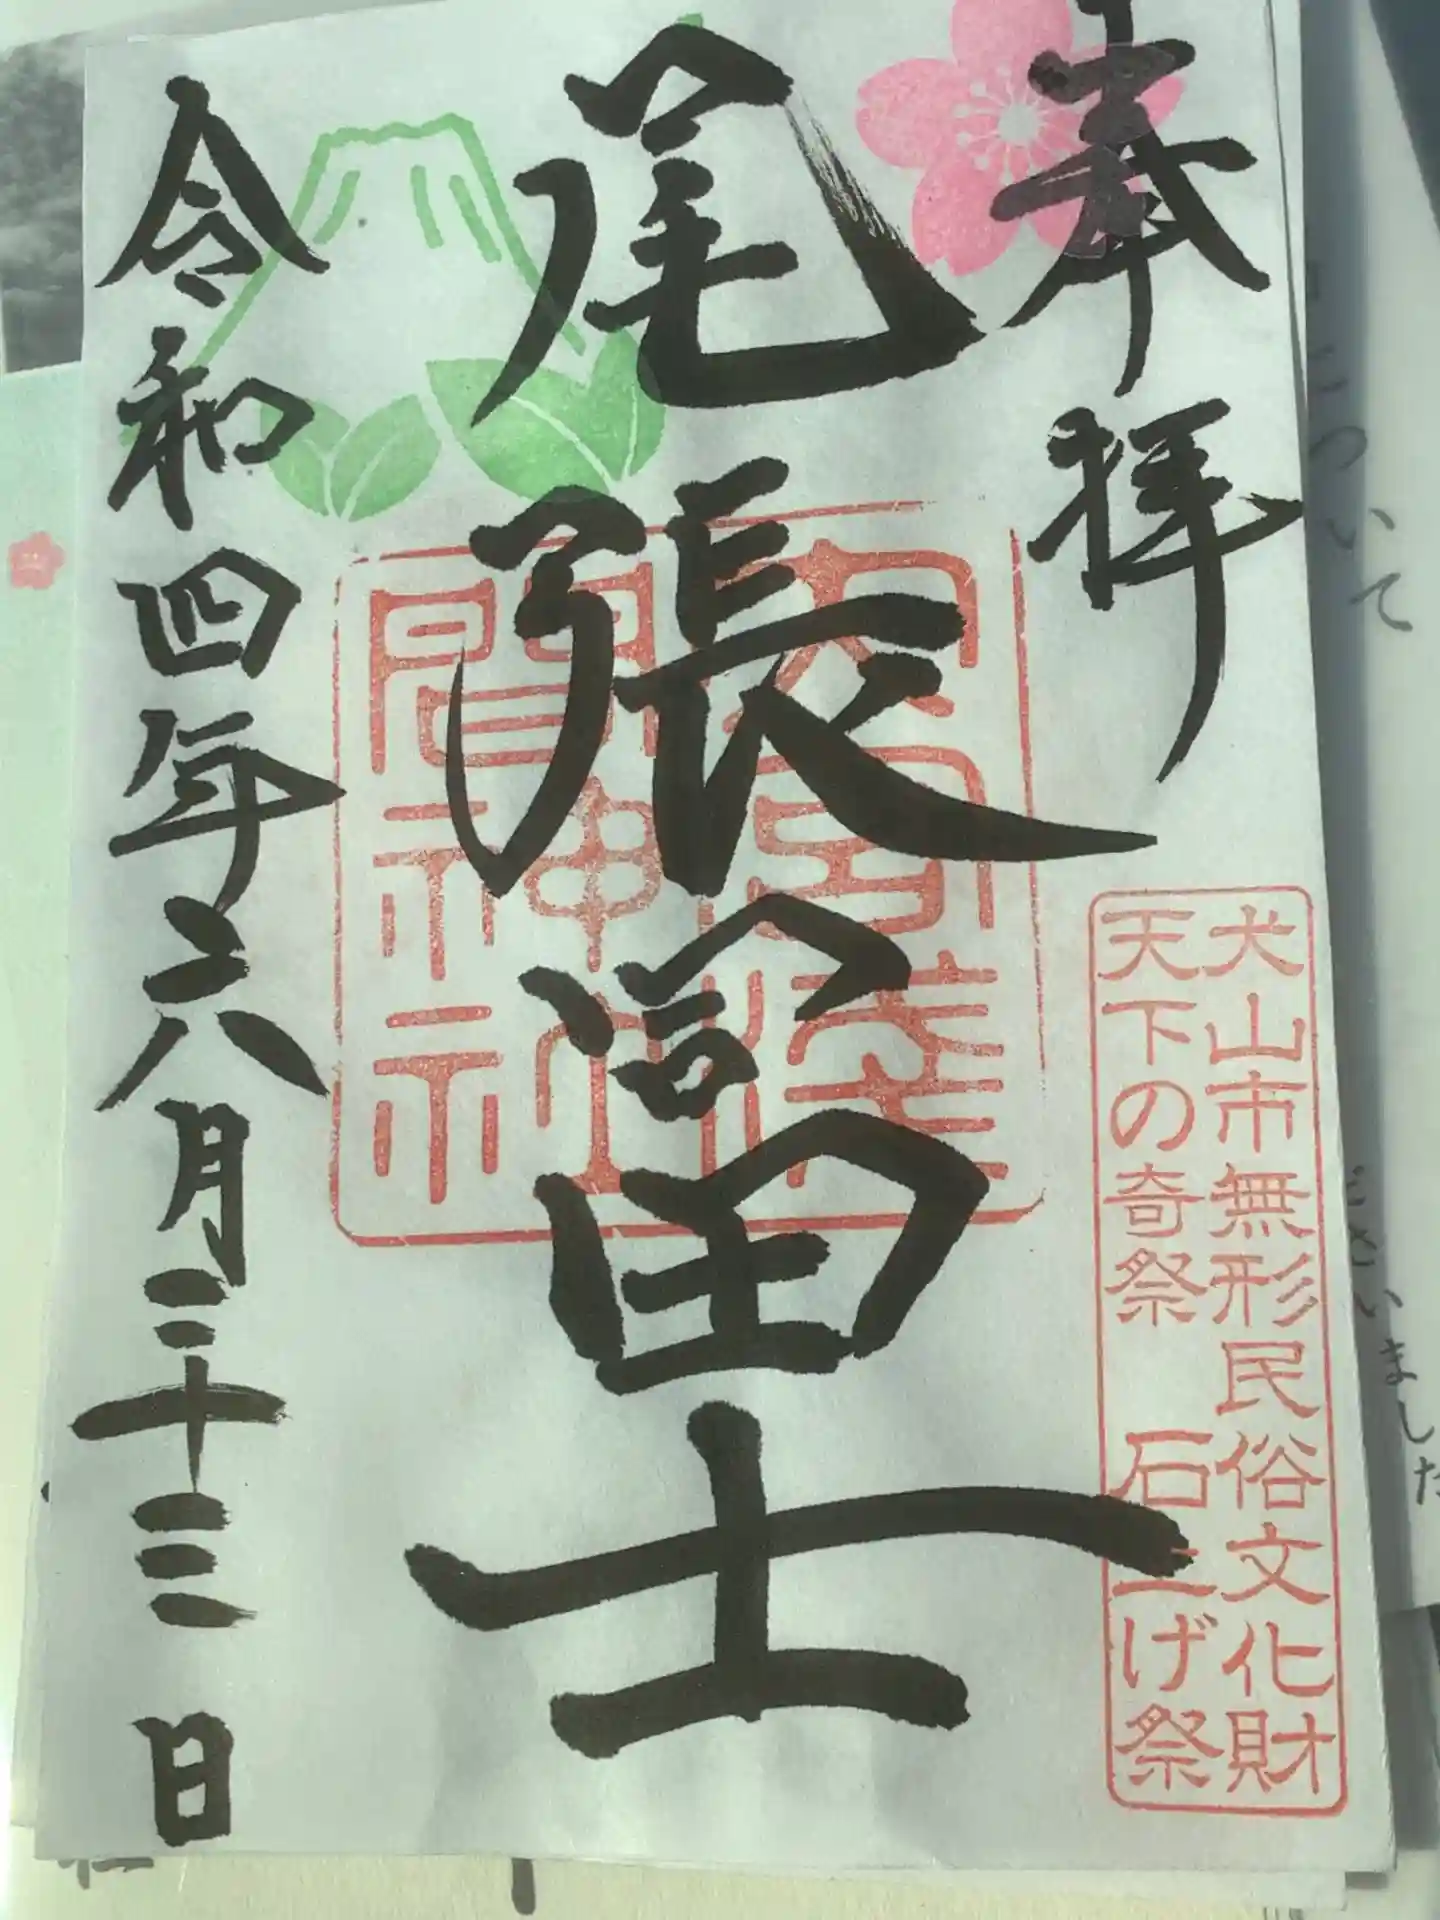 奉拝
犬山市無形民俗文化財
天下の奇祭 石上げ祭
尾張冨士
大宮淺
間神社
令和四年六月二十三日
ついて
ございました